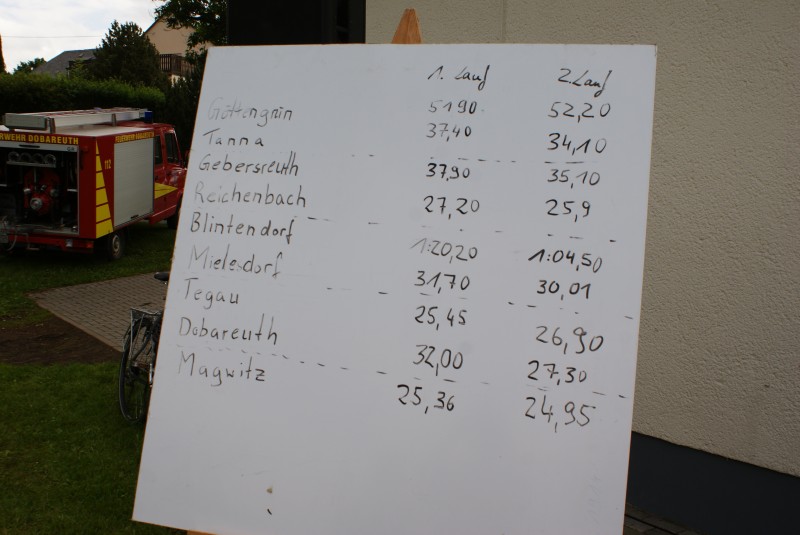 1. Lauf 2. Lauf
Göttengrün 51,90 52,20
Tanna 37,40 34,10
Gebersreuth 37,90 35,10
Reichenbach 27,20 25,9
Blintendorf 1:20,20 1:04,50
Mielesdorf 31,70 30,01
Tegau 25,45 26,90
Dobareuth 32,00 27,30
Magwitz 25,36 24,95
WEHR DOBAREUTH
112